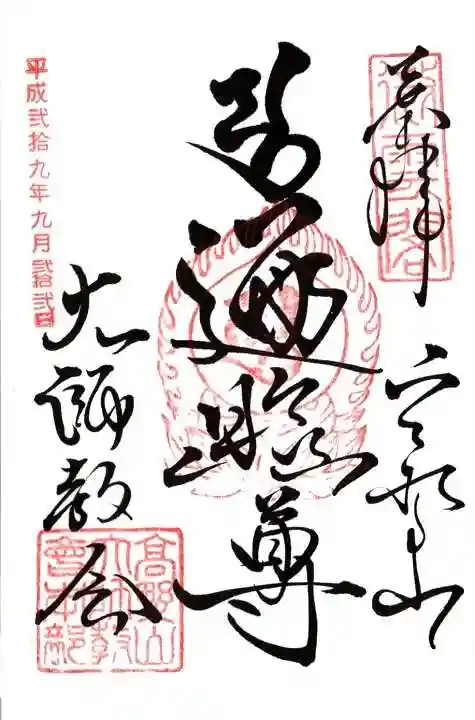 奉拝
高野山
遍照尊
大師教会
平成弐拾九年九月弐拾弐日
高野山
大師教
會本部